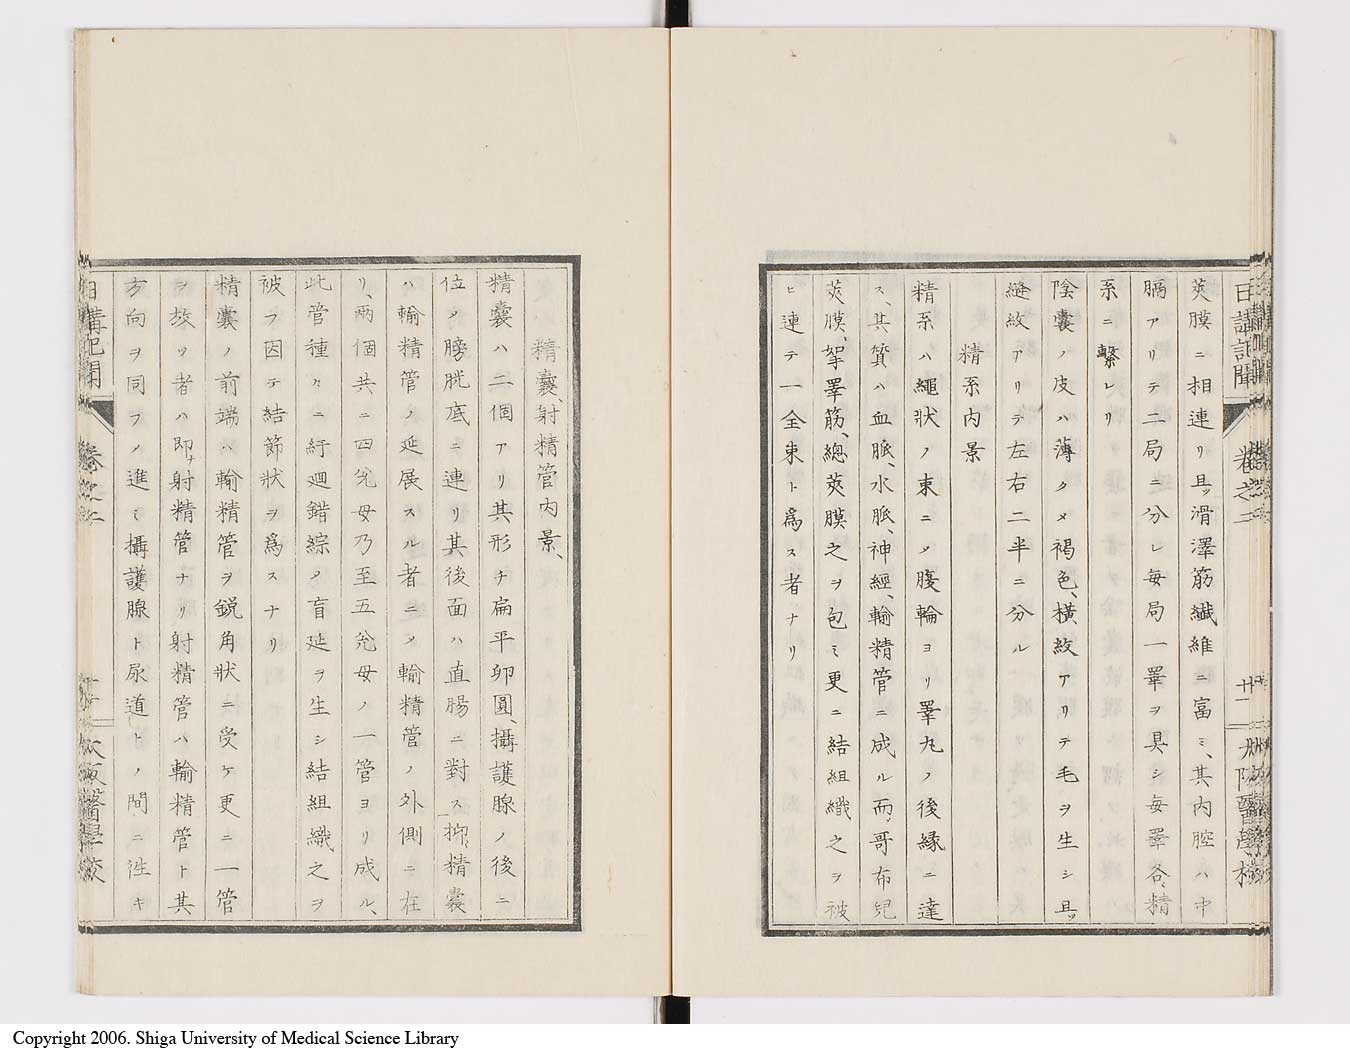 日講記聞 卷之二 廿一 大阪醫學校
莢膜ニ相連リ且ッ滑澤筋纎維ニ富ミ、其内腔ハ中
膈アリテ二局ニ分レ毎局一睪ヲ具シ毎睪各、精
系ニ繫レリ
陰嚢ノ皮ハ薄クメ褐色、橫紋アリテ毛ヲ生シ且ッ
縫紋アリテ左右二半ニ分ル
精系内景
精系ハ繩狀ノ束ニメ腹輪ヨリ睪丸ノ後緣ニ達
ス、其質ハ血脈、水脈、神經、輸精管ニ成ル而、哥布兒
莢膜、挐睪筋、總莢膜之ヲ包ミ更ニ結組織之ヲ被
ヒ連テ一全束ト爲ス者ナリ
精嚢、射精管内景、
精嚢ハ二個アリ其形チ扁平卵圓、攝護腺ノ後ニ
位メ膀胱底ニ連リ其後面ハ直腸ニ對ス抑、精嚢
ハ輸精管ノ延展スル者ニメ輸精管ノ外側ニ在
リ、兩個共ニ四兊母乃至五兊母ノ一管ヨリ成ル、
此管種々ニ紆廻錯綜メ盲延ヲ生シ結組織、之ヲ
被フ因テ結節狀ヲ爲スナリ
精嚢ノ前端ハ輸精管ヲ鋭角狀ニ受ケ更ニ一管
ヲ放ツ者ハ即、射精管ナリ射精管ハ輸精管ト其
方向ヲ同フメ進ミ攝護腺ト尿道トノ間ニ往キ
日講記聞 卷之二 大阪醫學校
Copyright 2006. Shiga University of Medical Science Library